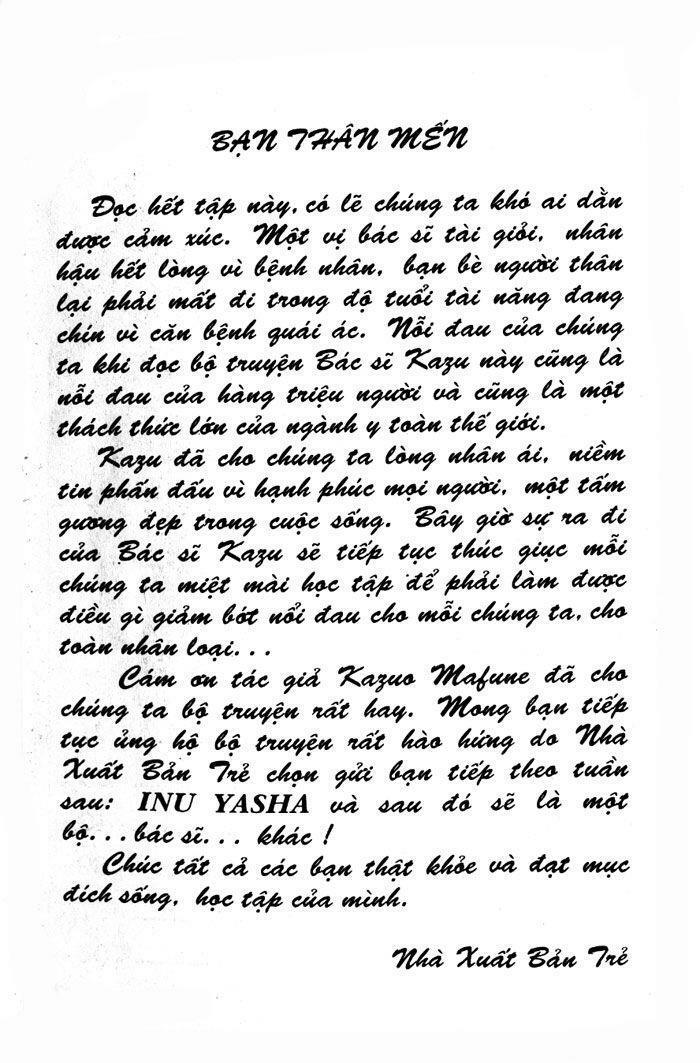 BẠN THÂN MẾN
Đọc hết tập này, có lẽ chúng ta khó ai dằn
được cảm xúc. Một vị bác sĩ tài giỏi, nhân
hậu hết lòng vì bệnh nhân, bạn bè người thân
lại phải mất đi trong độ tuổi tài năng đang
chín vì căn bệnh quái ác. Nỗi đau của chúng
ta khi đọc bộ truyện Bác sĩ Kazu này cũng là
nỗi đau của hàng triệu người và cũng là một
thách thức lớn của ngành y toàn thế giới.
Kazu đã cho chúng ta lòng nhân ái, niềm
tin phấn đấu vì hạnh phúc mọi người, một tấm
gương đẹp trong cuộc sống. Bây giờ sự ra đi
của Bác sĩ Kazu sẽ tiếp tục thúc giục mỗi
chúng ta miệt mài học tập để phải làm được
điều gì giảm bớt nổi đau cho mỗi chúng ta, cho
toàn nhân loại...
Cám ơn tác giả Kazuo Mafune đã cho
chúng ta bộ truyện rất hay. Mong bạn tiếp
tục ủng hộ bộ truyện rất hào hứng do Nhà
Xuất Bản Trẻ chọn gửi bạn tiếp theo tuần
sau: INU YASHA và sau đó sẽ là một
bộ...bác sĩ... khác !
Chúc tất cả các bạn thật khỏe và đạt mục
đích sống, học tập của mình.
Nhà Xuất Bản Trẻ